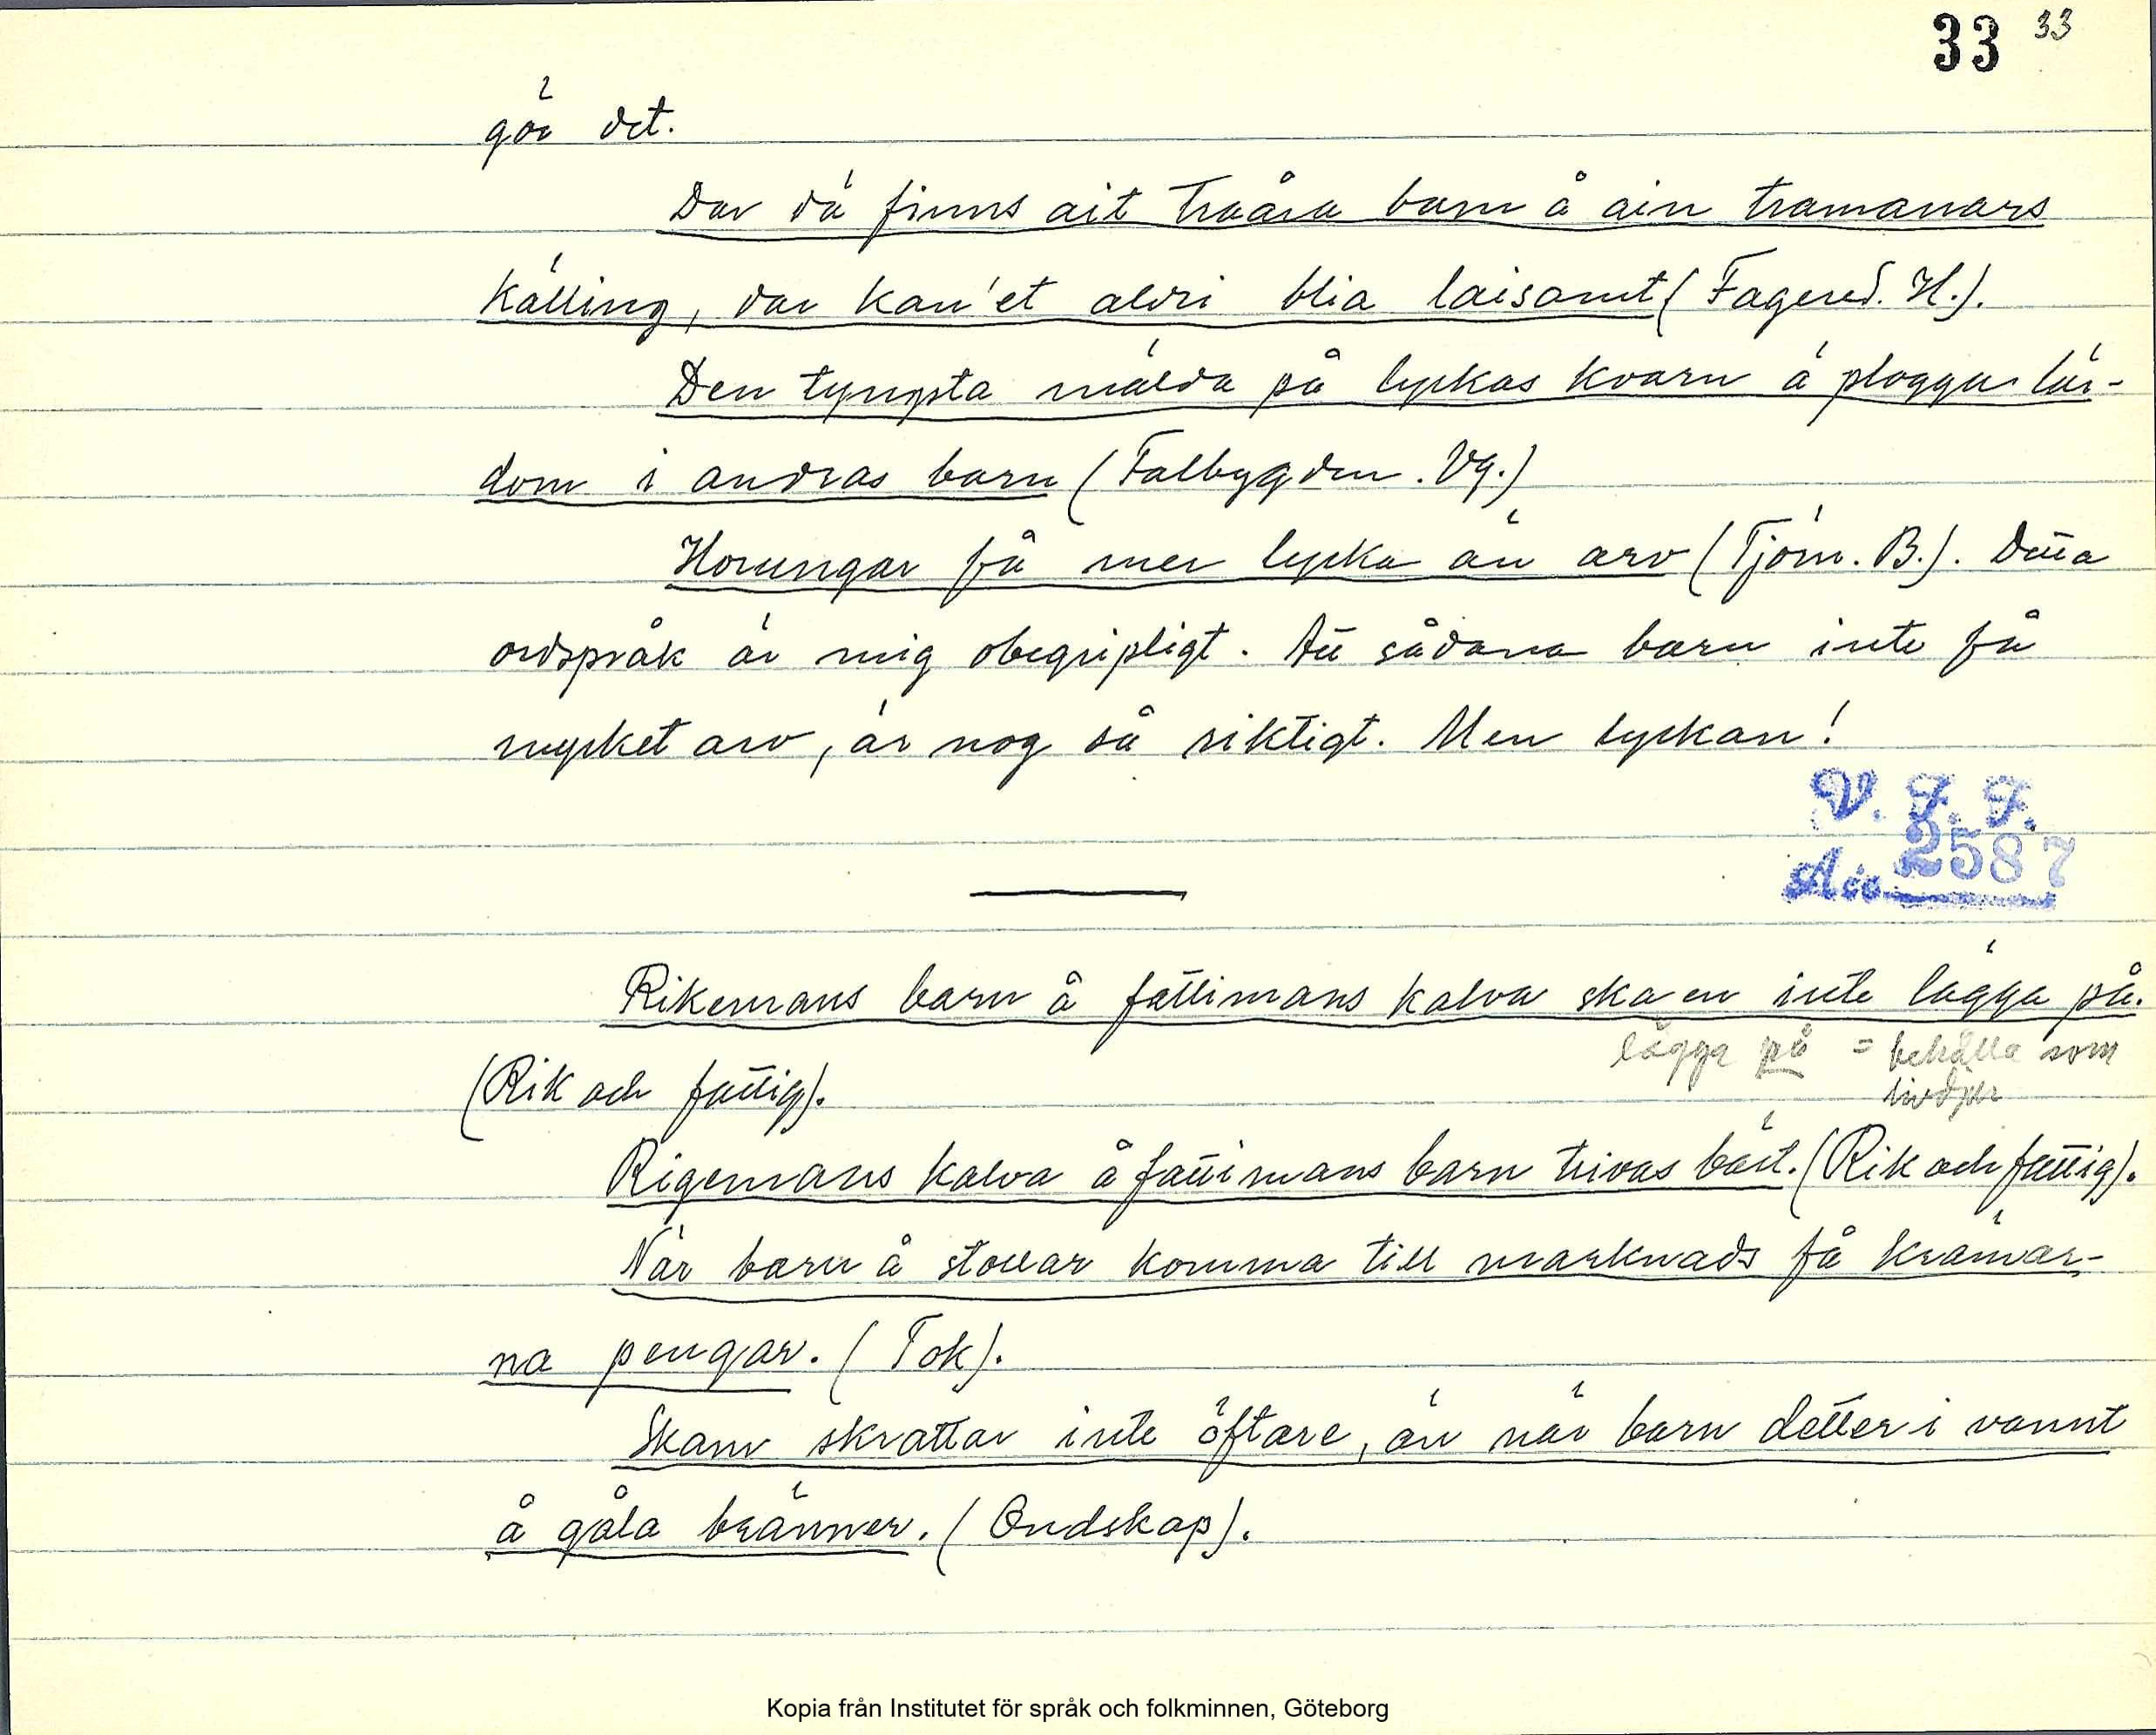 33 33
gör det.
Där dä finns ait traåra barn å ain tramanars
källing, där kan'et aldri blia laisamt (Fagered. H.).
Den tyngsta mälda på lyckas kvarn ä plogga lär-
dom i andras barn (Falbygden. Vg.)
Horungar få mer lycka än arv (Tjörn. B.). Detta
ordspråk är mig obegripligt. Att sådana barn inte få
mycket arv, är nog så riktigt. Men lyckan!
V. F. F.
Acc 2587
Rikemans barn å fattimans kalva ska en inte lägga på.
lägga på = behålla som
(Rik och fattig).
livdjur
Rigemans kalva å fattimans barn trivas bäst. (Rik och fattig).
När barn å stollar komma till marknads få krämar-
na pengar. (Tok).
Skam skrattar inte öftare, än när barn detter i vannt
å gåla bränner. (Ondskap).
Kopia från Institutet för språk och folkminnen, Göteborg